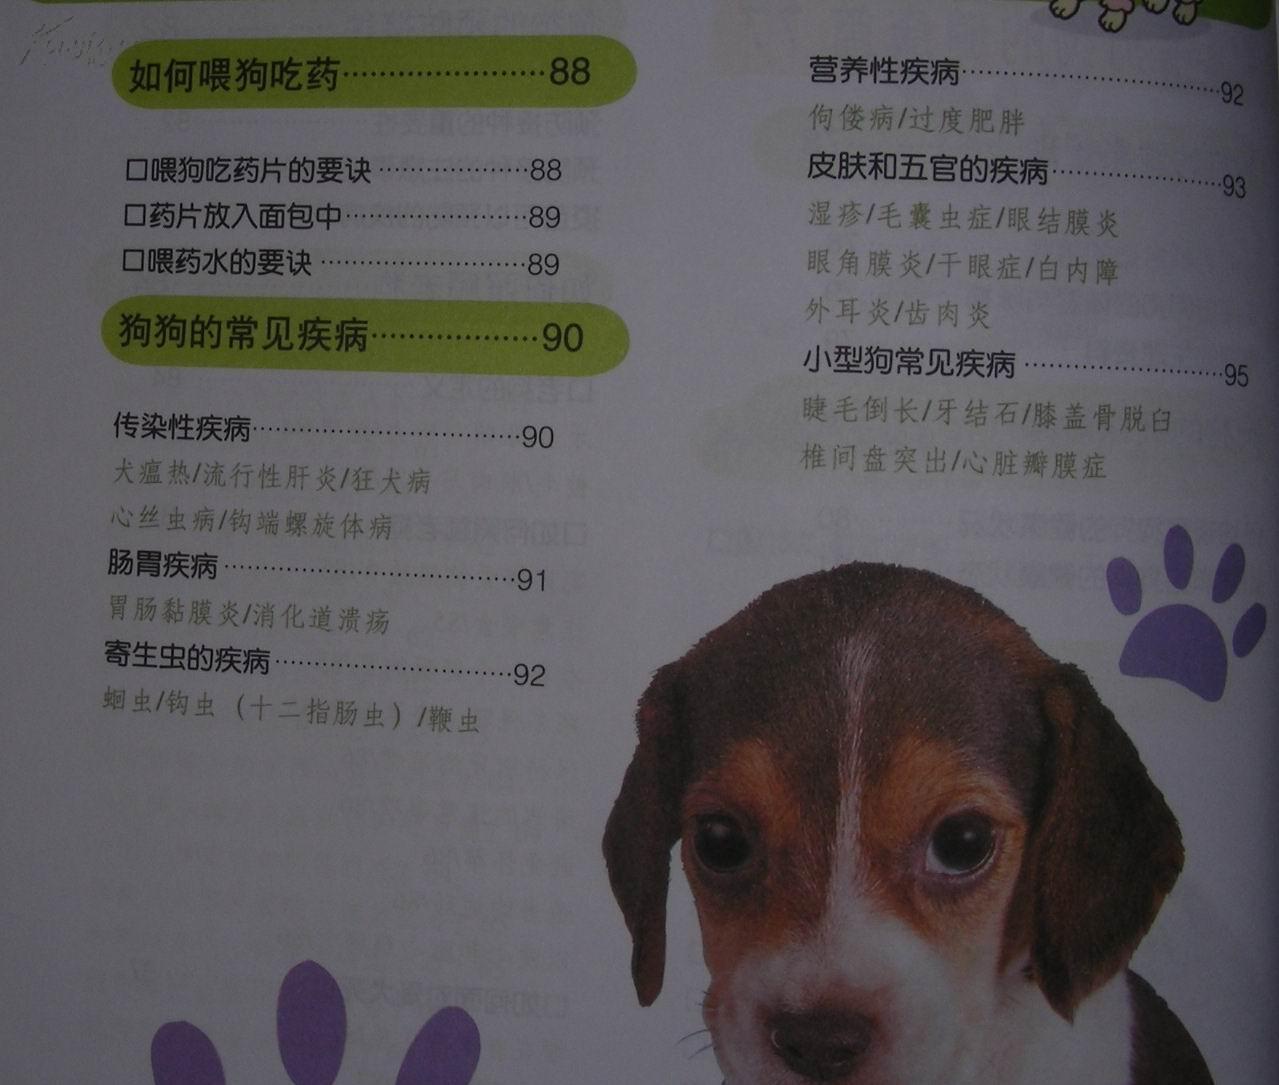 如何喂狗吃药······················88
口喂狗吃药片的要诀················88
口药片放入面包中····················89
口喂药水的要诀······················89
狗狗的常见疾病··················90
传染性疾病······························90
犬瘟热/流行性肝炎/狂犬病
心丝虫病/钩端螺旋体病
肠胃疾病································91
胃肠黏膜炎/消化道溃疡
寄生虫的疾病··························92
蛔虫/钩虫（十二指肠虫）/鞭虫
营养性疾病······························92
佝偻病/过度肥胖
皮肤和五官的疾病····················93
湿疹/毛囊虫症/眼结膜炎
眼角膜炎/干眼症/白内障
外耳炎/齿肉炎
小型狗常见疾病························95
睫毛倒长/牙结石/膝盖骨脱臼
椎间盘突出/心脏瓣膜症